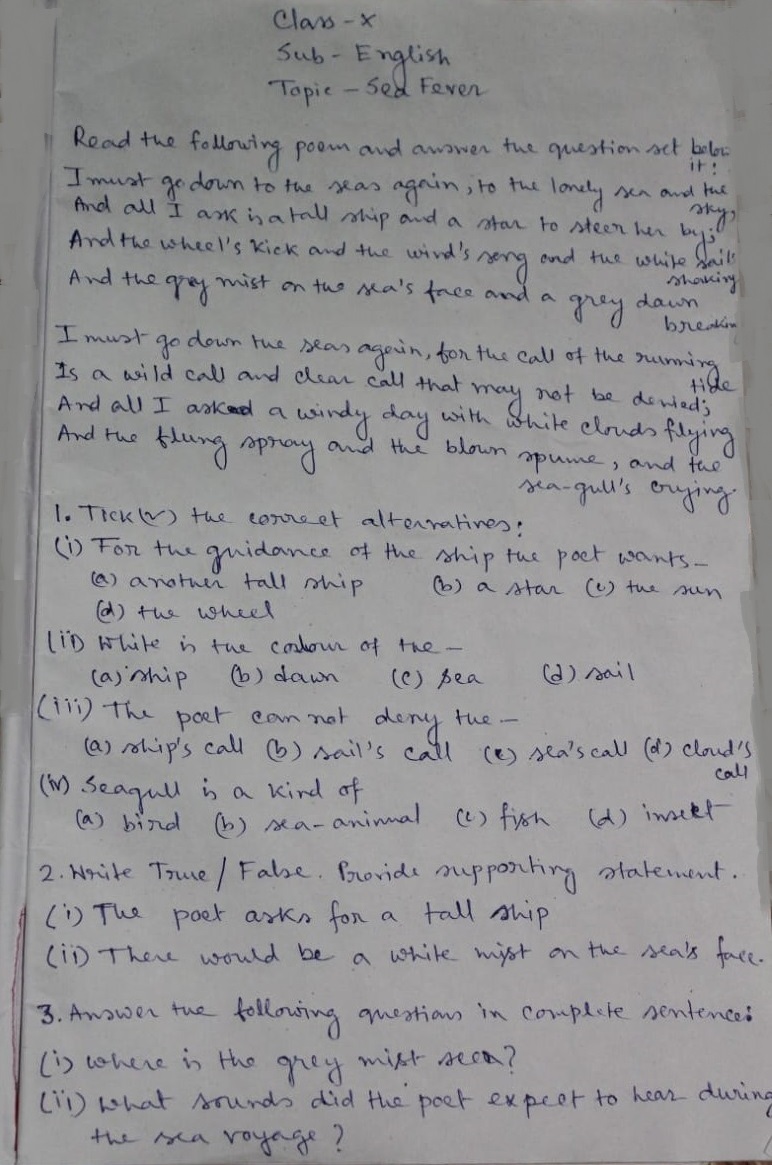 Class - X
Sub - English
Topic - Sea Fever
Read the following poem and answer the question set below
it:
I must go down to the seas again, to the lonely sea and the
sky,
And all I ask is a tall ship and a star to steer her by;
And the wheel's kick and the wind's song and the white sail's
shaking
And the grey mist on the sea's face and a grey dawn
breakin
I must go down the seas again, for the call of the running
tide
Is a wild call and clear call that may not be denied;
And all I asked a windy day with white clouds flying
And the flung spray and the blown spume, and the
sea-gull's crying.
1. Tick (✓) the correct alternatives:
(i) For the guidance of the ship the poet wants-
(a) another tall ship (b) a star (c) the sun
(d) the wheel
(ii) White is the colour of the -
(a) ship (b) dawn (c) sea (d) sail
(iii) The poet can not deny the -
(a) ship's call (b) sail's call (c) sea's call (d) cloud's
call
(iv) Seagull is a kind of
(a) bird (b) sea-animal (c) fish (d) insect
2. Write True / False. Provide supporting statement.
(i) The poet asks for a tall ship
(ii) There would be a white mist on the sea's face.
3. Answer the following questions in complete sentence:
(i) where is the grey mist seen?
(ii) what sounds did the poet expect to hear during
the sea voyage?